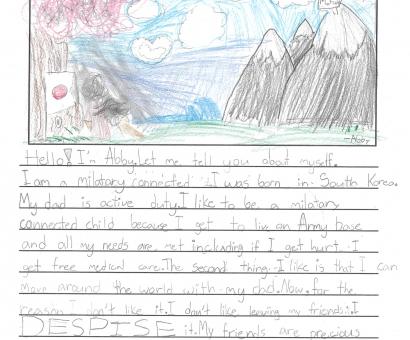 -Abby
Hello! I'm Abby. Let me tell you about myself.
I am a milatary connected. I was born in South Korea.
My dad is active duty. I like to be a milatary
connected child because I get to live on Army base
and all my needs are met including if I get hurt. I
get free medical care. The second thing I like is that I can
move around the world with my dad. Now for the
reason I don't like it. I don't like leaving my friends. I
DESPISE it. My friends are precious